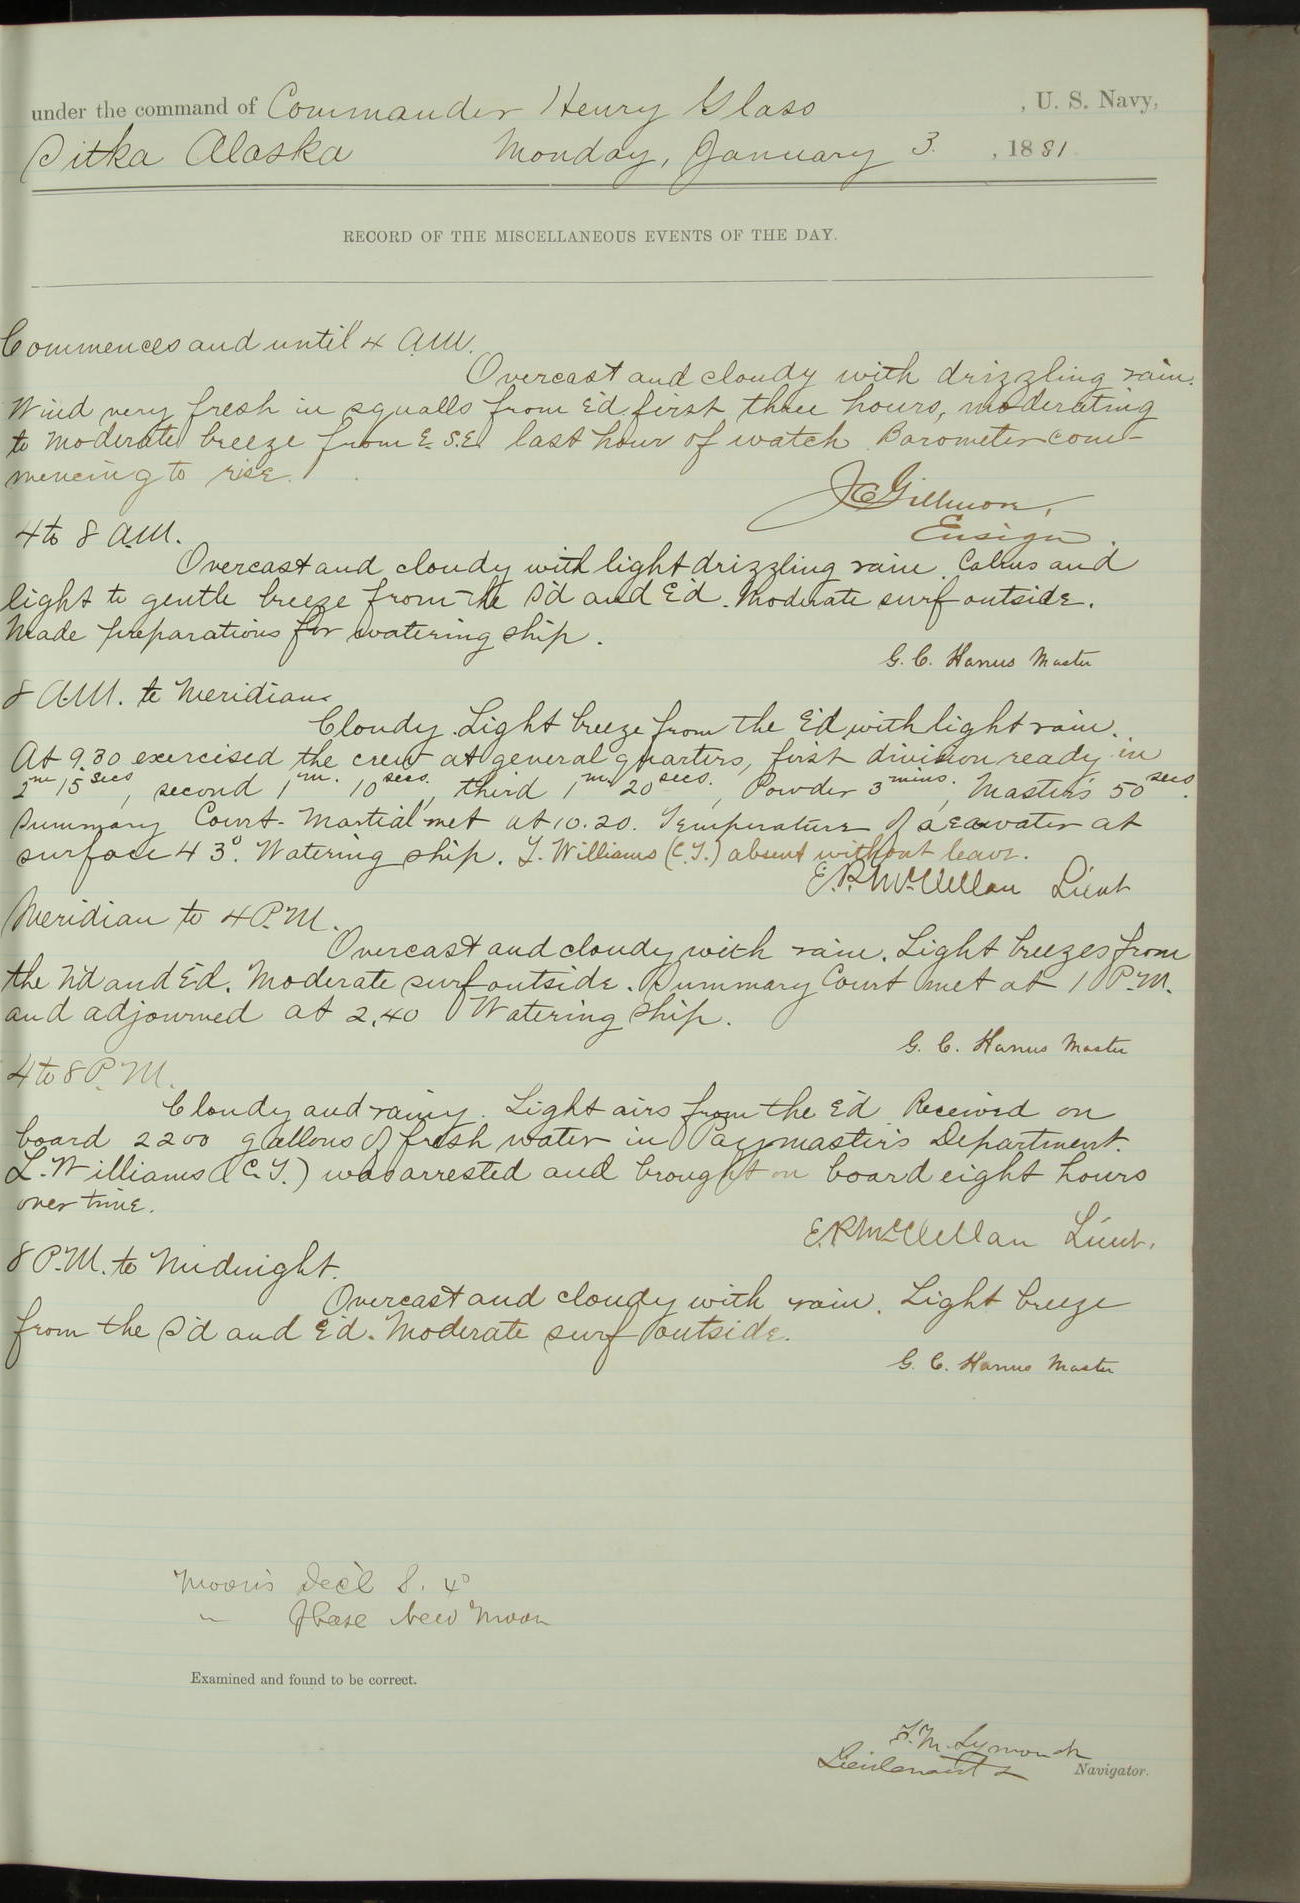 under the command of Commander Henry Glass , U. S. Navy,
Sitka Alaska Monday, January 3 , 1881
RECORD OF THE MISCELLANEOUS EVENTS OF THE DAY.
Commences and until 4 A.M.
Overcast and cloudy with drizzling rain.
Wind very fresh in squalls from E'd first three hours, moderating
to moderate breeze from E. S.E. last hour of watch. Barometer com-
mencing to rise.
J C Gillmore,
Ensign.
4 to 8 A.M.
Overcast and cloudy with light drizzling rain. Calms and
light to gentle breeze from the S'd and E'd. Moderate surf outside.
Made preparations for watering ship.
G. C. Hanus Master
8 A.M. to Meridian
Cloudy. Light breeze from the E'd with light rain.
At 9.30 exercised the crew at general quarters, first division ready in
2m 15secs, second 1m. 10secs., third 1m 20secs., Powder 3mins., Masters 50secs.
Summary Court-Martial met at 10.20. Temperature of sea water at
surface 43°. Watering ship. L. Williams (C.T.) absent without leave.
E.P. McClellan Lieut
Meridian to 4 P.M.
Overcast and cloudy with rain. Light breezes from
the N'd and E'd. Moderate surf outside. Summary Court met at 1 P.M.
and adjourned at 2.40 Watering ship.
G. C. Hanus Master
4 to 8 P.M.
Cloudy and rainy. Light airs from the E'd. Received on
board 2200 gallons of fresh water in Paymaster's Department.
L. Williams (C.T.) was arrested and brought on board eight hours
over time.
E.P. McClellan Lieut.
8 P.M. to Midnight.
Overcast and cloudy with rain. Light breeze
from the S'd and E'd. Moderate surf outside.
G. C. Hanus Master
Moon's Dec'l S. 4°
" Phase New Moon
Examined and found to be correct.
F. M. Symonds
Lieutenant & Navigator.